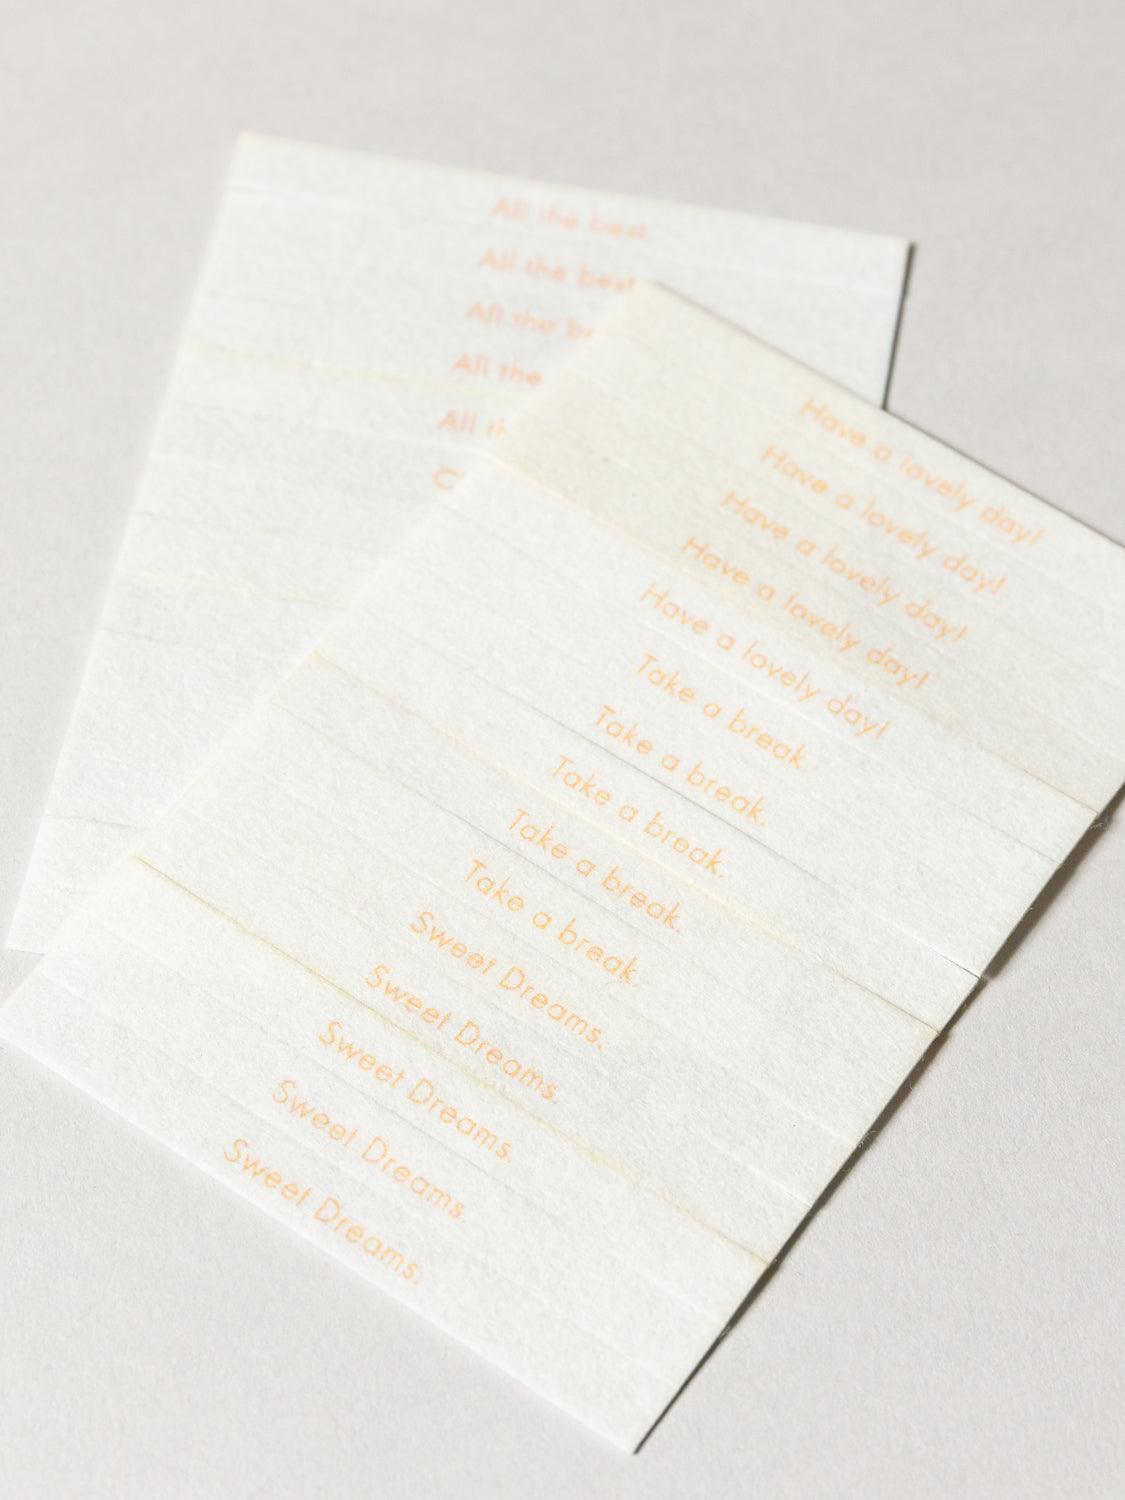 All the best.
All the best.
All the
All the
All
Have a lovely day!
Have a lovely day!
Have a lovely day!
Have a lovely day!
Have a lovely day!
Take a break.
Take a break.
Take a break.
Take a break.
Take a break.
Sweet Dreams.
Sweet Dreams.
Sweet Dreams.
Sweet Dreams.
Sweet Dreams.